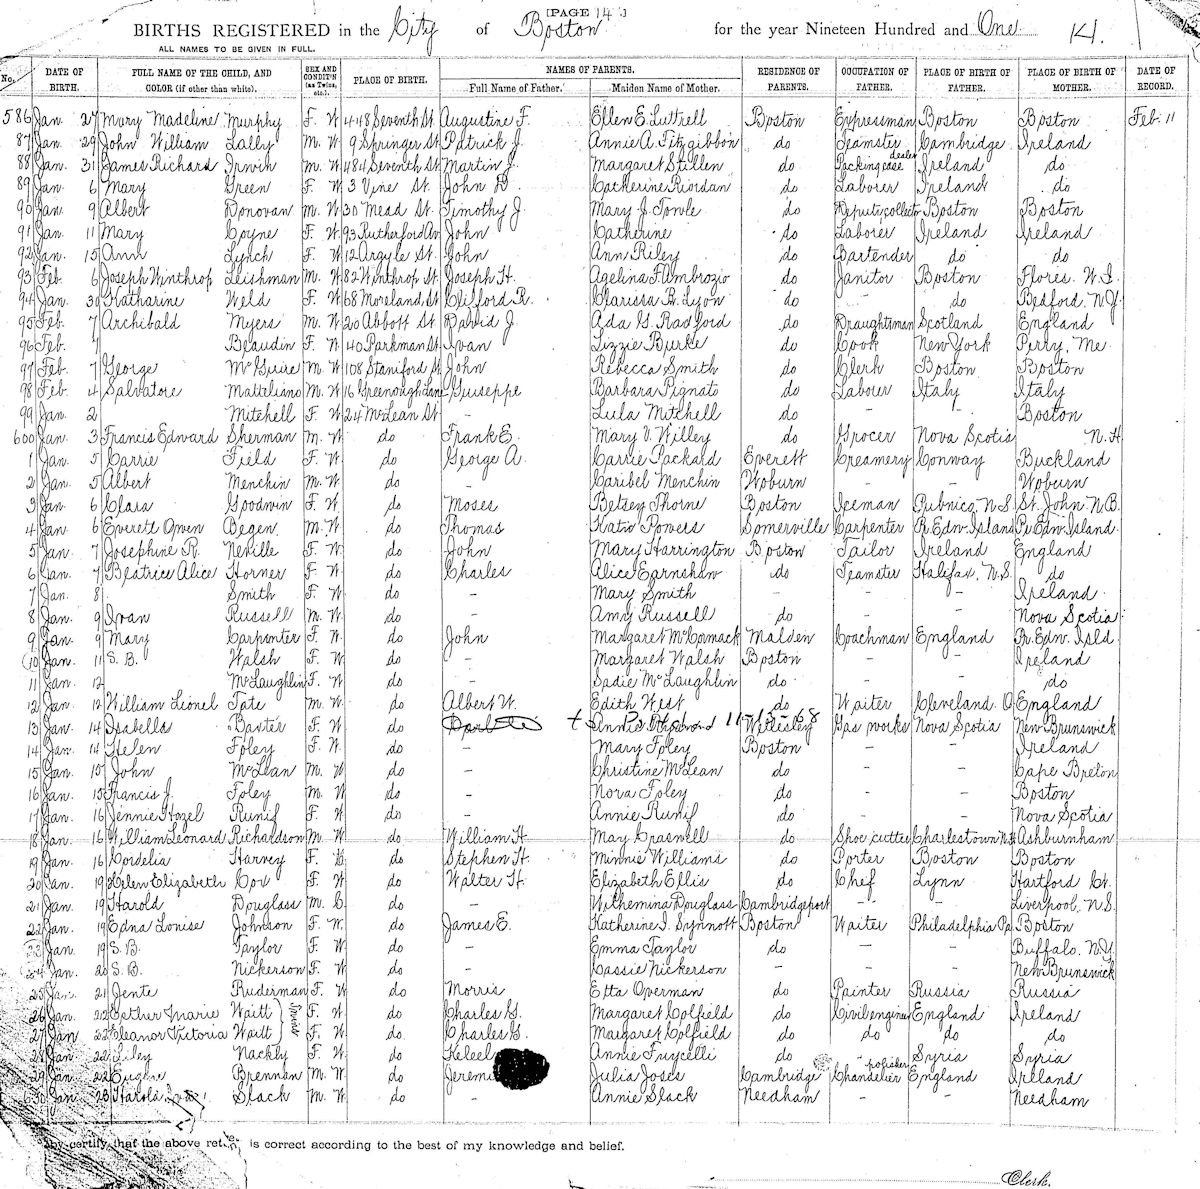 [PAGE 14]
BIRTHS REGISTERED in the City of Boston for the year Nineteen Hundred and One. 14.
ALL NAMES TO BE GIVEN IN FULL.
No. DATE OF BIRTH. FULL NAME OF THE CHILD, AND COLOR (if other than white). SEX AND CONDIT'N (as Twins, etc.) PLACE OF BIRTH. NAMES OF PARENTS. Full Name of Father. Maiden Name of Mother. RESIDENCE OF PARENTS. OCCUPATION OF FATHER. PLACE OF BIRTH OF FATHER. PLACE OF BIRTH OF MOTHER. DATE OF RECORD.
586 Jan. 27 Mary Madeline Murphy F. W 448 Seventh St Augustine F. Ellen E. Luttrell Boston Expressman Boston Boston Feb. 11
87 Jan. 29 John William Lally M. W. 9 Springer St Patrick J. Annie A. Fitzgibbon do Teamster Cambridge Ireland
88 Jan. 31 James Richard Irwin M. W 484 Seventh St Martin J. Margaret Stillen do Packing case dealer Ireland do
89 Jan. 6 Mary Green F. W 3 Vine St. John D. Catherine Riordan do Laborer Ireland do
90 Jan. 9 Albert Donovan M. W 30 Mead St. Timothy J. Mary J. Towle do Deputy collector Boston Boston
91 Jan. 11 Mary Coyne F. W 93 Rutherford Av. John Catherine do Laborer Ireland Ireland
92 Jan. 15 Ann Lynch F. W 12 Argyle St. John Ann Riley do Bartender do do
93 Feb. 6 Joseph Winthrop Leishman M. W 82 Winthrop St. Joseph H. Agelina F. Ambrozio do Janitor Boston Flores. W. I.
94 Jan. 30 Katharine Weld F. W 68 Moreland St Clifford R. Clarissa B. Lyon do - do Bedford N.Y.
95 Feb. 7 Archibald Myers M. W 20 Abbott St. David J. Ada G. Radford do Draughtsman Scotland England
96 Feb. 7 Beaudin F. W 40 Parkman St. Ivan Lizzie Burke do Cook New York Perry, Me.
97 Feb. 7 George McGuire M. W 108 Staniford St John Rebecca Smith do Clerk Boston Boston
98 Feb. 4 Salvatore Matteliano M. W 16 Greenough Lane Giuseppe Barbara Pignato do Laborer Italy Italy
99 Jan. 2 Mitchell F. W 24 McLean St - Lula Mitchell do - - Boston
600 Jan. 3 Francis Edward Sherman M. W. do Frank E. Mary V. Willey do Grocer Nova Scotia N. H.
1 Jan. 5 Carrie Field F. W. do George A. Carrie Packard Everett Creamery Conway Buckland
2 Jan. 5 Albert Menchin M. W. do - Caribel Menchin Woburn - - Woburn
3 Jan. 6 Clara Goodwin F. W. do Moses Betsey Thorne Boston Iceman Pubnico, N.S. St. John N.B.
4 Jan. 6 Everett Owen Began M. W do Thomas Katie Powers Somerville Carpenter P. Edw. Island Pr. Edw. Island.
5 Jan. 7 Josephine R. Neville F. W. do John Mary Harrington Boston Tailor Ireland England
6 Jan. 7 Beatrice Alice Horner F. W. do Charles Alice Earnshaw do Teamster Halifax, N.S. do
7 Jan. 8 Smith F. W. do - Mary Smith - - Ireland
8 Jan. 9 Ivan Russell M. W. do - Amy Russell do - Nova Scotia
9 Jan. 9 Mary Carpenter F. W. do John Margaret McCormack Malden Coachman England Pr. Edw. Isld.
10 Jan. 11 S. B. Walsh F. W. do - Margaret Walsh Boston - - Ireland
11 Jan. 12 McLaughlin F. W. do - Sadie McLaughlin do - - do
12 Jan. 12 William Lionel Tate M. W. do Albert W. Edith West do Waiter Cleveland. O. England
13 Jan. 14 Isabella Baxter F. W. do Annie 11-15-68 Wellesley Gas works Nova Scotia New Brunswick
14 Jan. 14 Helen Foley F. W. do - Mary Foley Boston Ireland
15 Jan. 15 John McLean M. W. do - Christine McLean do Cape Breton
16 Jan. 15 Francis J. Foley M. W. do - Nova Foley do Boston
17 Jan. 16 Jennie Hazel Runif F. W do - Annie Runif do Nova Scotia
18 Jan. 16 William Leonard Richardson M. W do William H. May Craswell do Shoe cutter Charlestown Ashburnham
19 Jan. 16 Cordelia Harvey F. do Stephen H. Minnie Williams do Porter Boston Boston
20 Jan. 19 Helen Elizabeth Cox F. W do Walter H. Elizabeth Ellis do Chef Lynn Hartford Ct.
21 Jan. 19 Harold Douglass M. C. do - Wilhemina Douglass Cambridgeport Liverpool, N.S.
22 Jan. 19 Edna Louise Johnson F. W. do James E. Katherine I. Synnott Boston Waiter Philadelphia Pa Boston
23 Jan. 19 S. B. Taylor F. W do - Emma Taylor do - - Buffalo. N.Y.
24 Jan. 20 S. B. Nickerson F. W do - Cassie Nickerson - - New Brunswick
25 Jan. 21 Jente Ruderman F. W do Morris Etta Overman do Painter Russia Russia
26 Jan. 22 Esther Marie Waitt Twins F. W. do Charles G. Margaret Colfield do Civil engineer England Ireland
27 Jan 22 Eleanor Victoria Waitt F. W. do Charles G. Margaret Colfield do do do do
28 Jan 22 Lily Nackly F. W do Keleel Annie Fuycelli do - Syria Syria
29 Jan. 22 Eugene Brennan M. W. do Julia Joses Cambridge Chandelier polisher England Ireland
630 Jan 23 Harold Slack M. W do - Annie Slack Needham - - Needham
certify that the above is correct according to the best of my knowledge and belief.
Clerk.